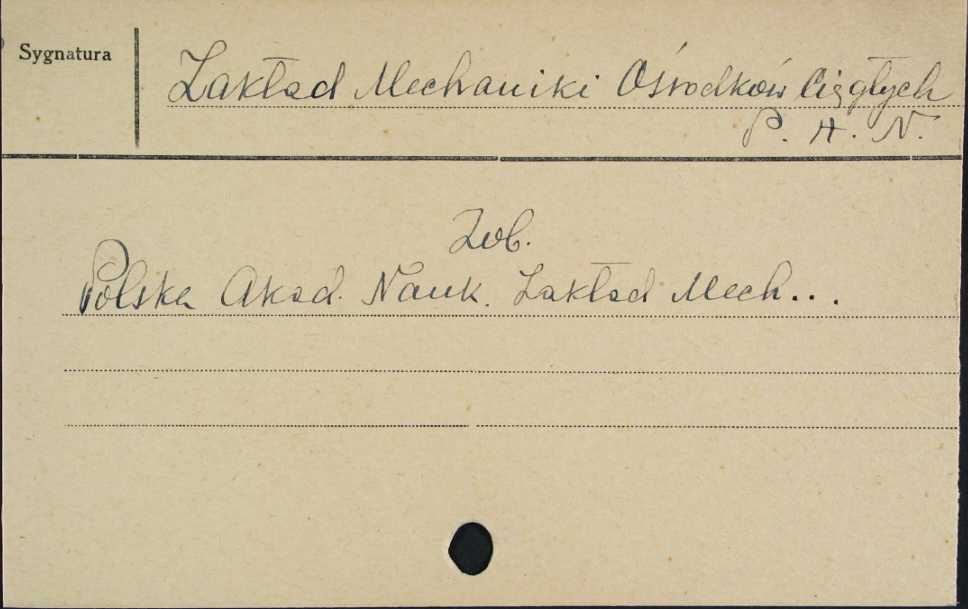 Sygnatura
Zakład Mechaniki Ośrodków Ciągłych
P. A. N.
Zob.
Polska Akad. Nauk. Zakład Mech...